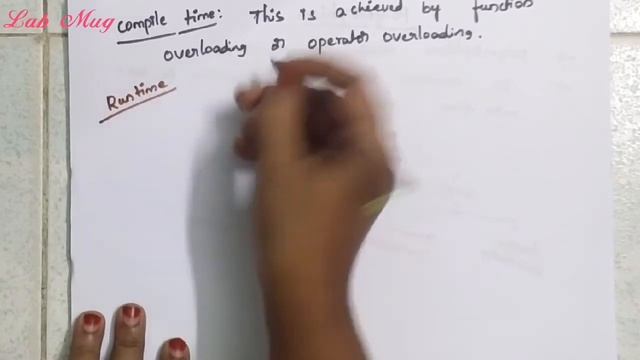 Lab Mug
compile time: This is achieved by function
overloading or operator overloading.
Runtime